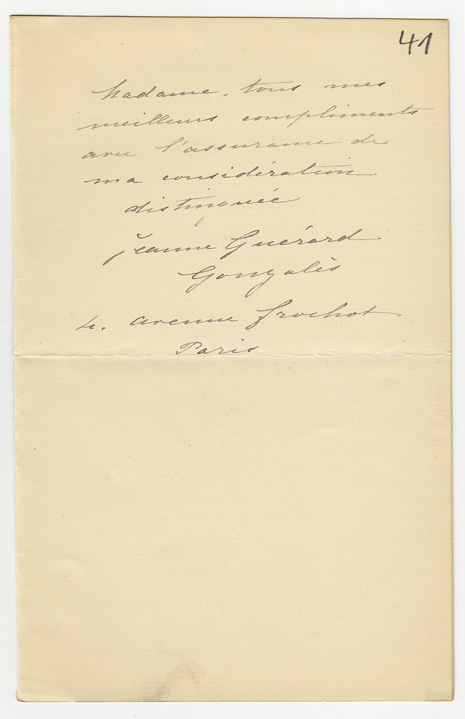 41
Madame, tous mes
meilleurs compliments
avec l'assurance de
ma considération
distinguée
Jeanne Guérard
Gonzalès
4. avenue Frochot
Paris